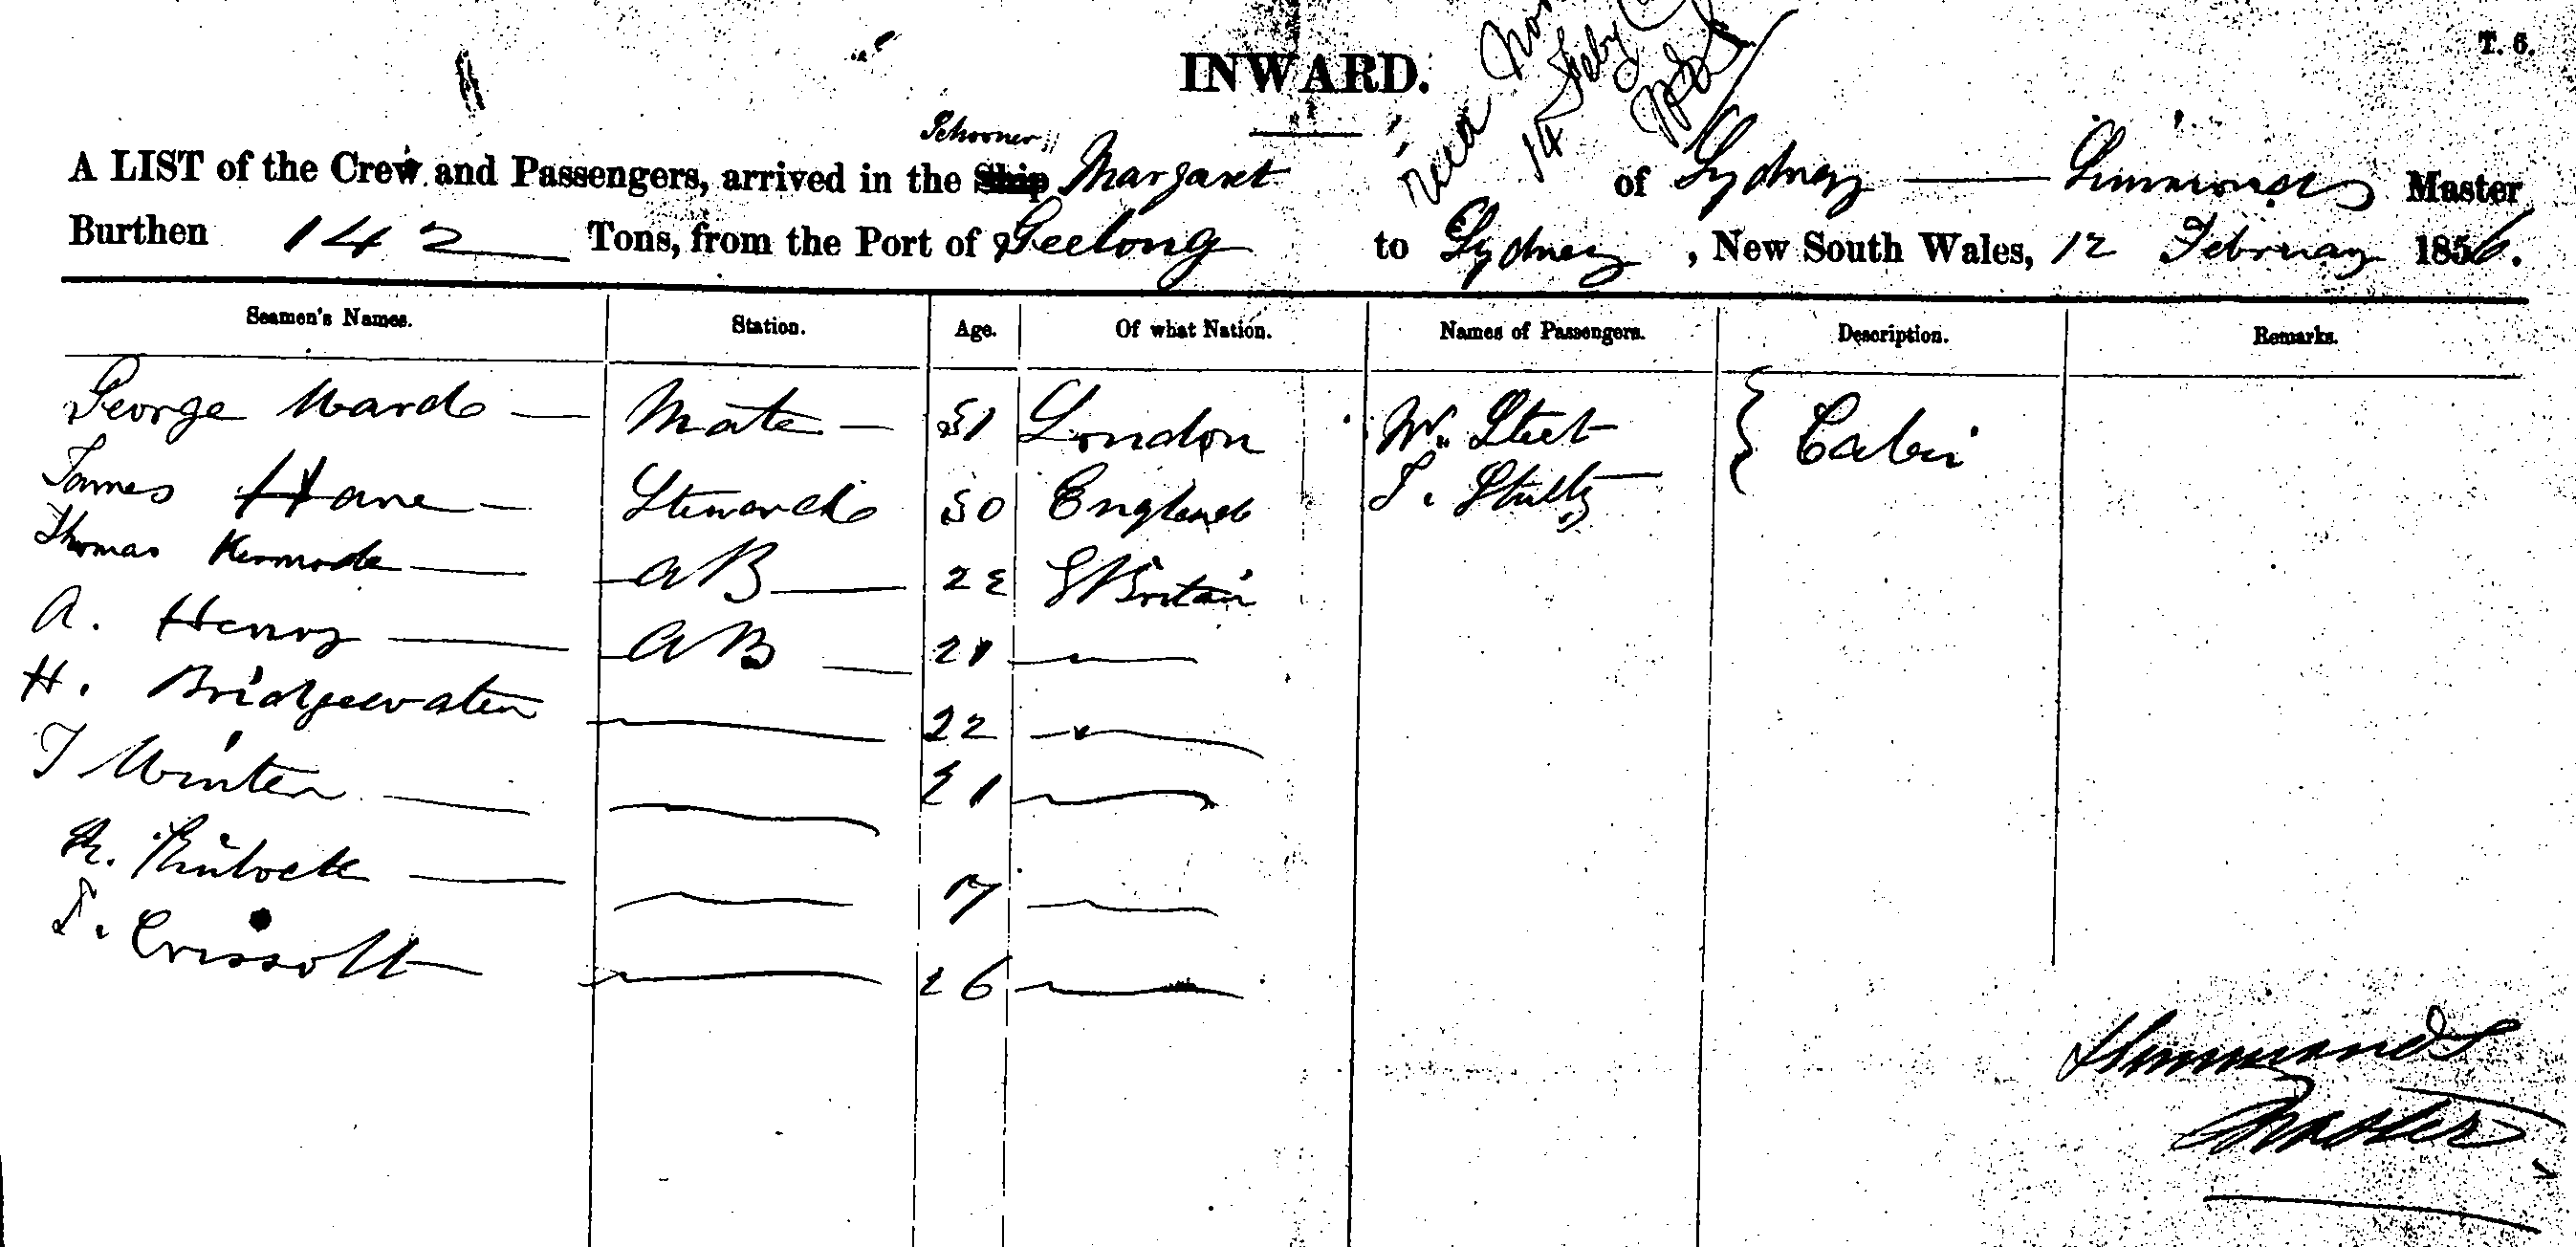 INWARD.
T. 6.
14 Feby
Schooner
A LIST of the Crew and Passengers, arrived in the Ship Margaret of Sydney — Simmonds Master
Burthen 142 Tons, from the Port of Geelong to Sydney, New South Wales, 12 February 1856.
Seamen's Names. Station. Age. Of what Nation. Names of Passengers. Description. Remarks.
George Ward — Mate — 51 London W. Steet } Cabin
James Hane — Steward 50 England S. Shultz
Thomas Kermode — AB — 22 G Britain
A. Henry — AB — 21 —
H. Bridgewater — 22 —
T Winter — — 21 —
R. — — 17 —
— 26 —
Simmonds
Master